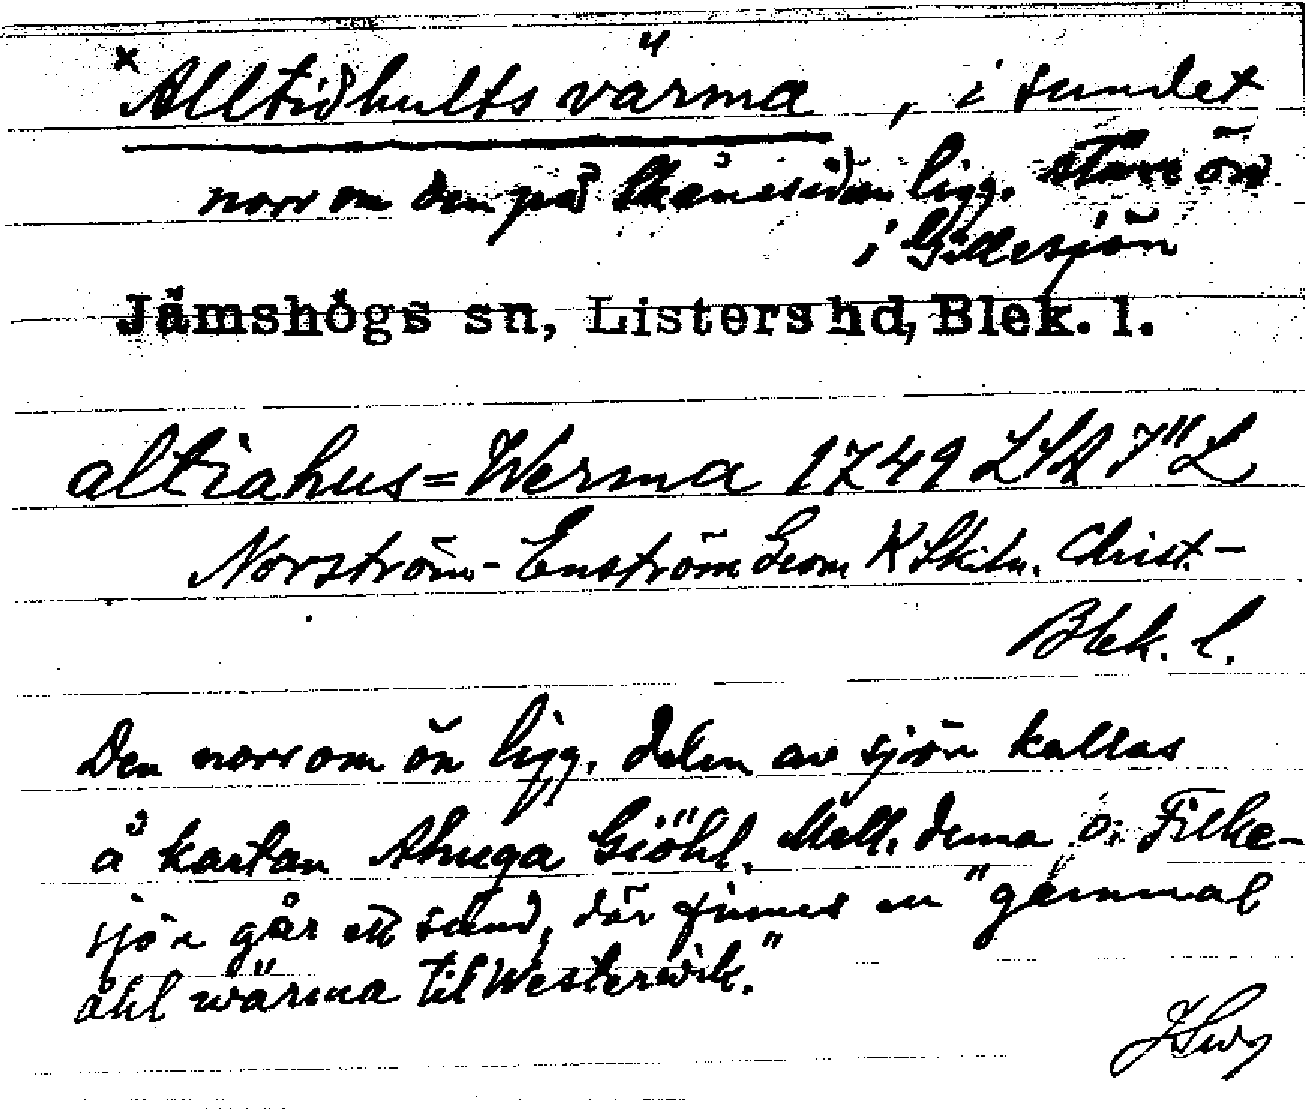 × Alltidhults värma, i sundet
norr om den på Skånesidan ligg. stora ön
i Gillesjön
Jämshögs sn, Listers hd, Blek. l.
altiahus=Werma 1749 LSA 7" L
Norström-Enström Geom K Skitn. Christ-
Blek. l.
Den norr om ön ligg. delen av sjön kallas
å kartan Ahuga Giöhl. Mell. denna o. Filke-
sjön går ett sund, där finnes en "gammal
åhl wärma til Westerwik."